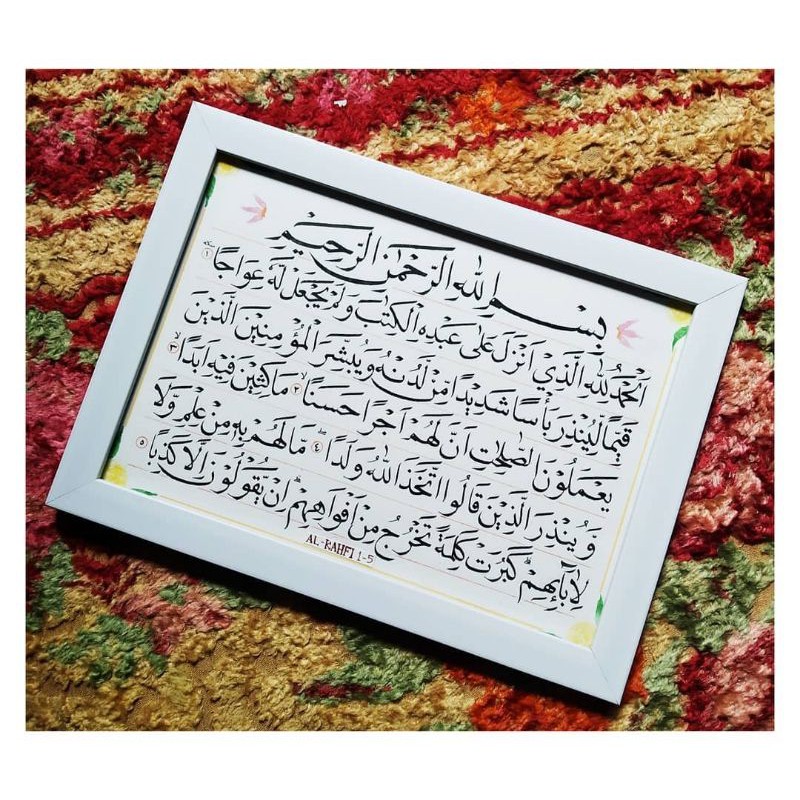 بِسْمِ اللّٰهِ الرَّحْمٰنِ الرَّحِيْمِ
اَلْحَمْدُ لِلّٰهِ الَّذِيْٓ اَنْزَلَ عَلٰى عَبْدِهِ الْكِتٰبَ وَلَمْ يَجْعَلْ لَّهٗ عِوَجًا ١
قَيِّمًا لِّيُنْذِرَ بَأْسًا شَدِيْدًا مِّنْ لَّدُنْهُ وَيُبَشِّرَ الْمُؤْمِنِيْنَ الَّذِيْنَ
يَعْمَلُوْنَ الصّٰلِحٰتِ اَنَّ لَهُمْ اَجْرًا حَسَنًا ٢ مَاكِثِيْنَ فِيْهِ اَبَدًا ٣
وَّيُنْذِرَ الَّذِيْنَ قَالُوا اتَّخَذَ اللّٰهُ وَلَدًا ٤ مَا لَهُمْ بِهٖ مِنْ عِلْمٍ وَّلَا
لِاٰبَآئِهِمْ كَبُرَتْ كَلِمَةً تَخْرُجُ مِنْ اَفْوَاهِهِمْ اِنْ يَّقُوْلُوْنَ اِلَّا كَذِبًا ٥
AL-KAHFI 1-5